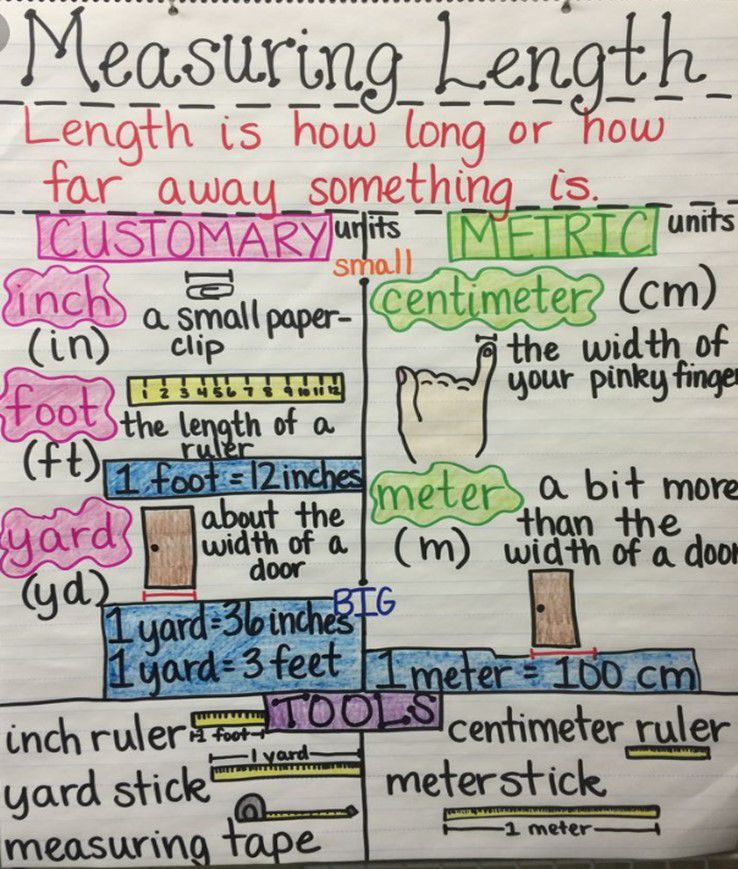 Measuring Length
Length is how long or how
far away something is.
CUSTOMARY units
METRIC units
small
inch
(in)
a small paper-
clip
foot
(ft)
1 2 3 4 5 6 7 8 9 10 11 12
the length of a
ruler
1 foot = 12 inches
yard
(yd)
about the
width of a
door
1 yard = 36 inches
1 yard = 3 feet
centimeter (cm)
the width of
your pinky finger
meter
(m)
a bit more
than the
width of a door
BIG
1 meter = 100 cm
TOOLS
inch ruler
1 foot
1 yard
yard stick
measuring tape
centimeter ruler
meter stick
1 meter